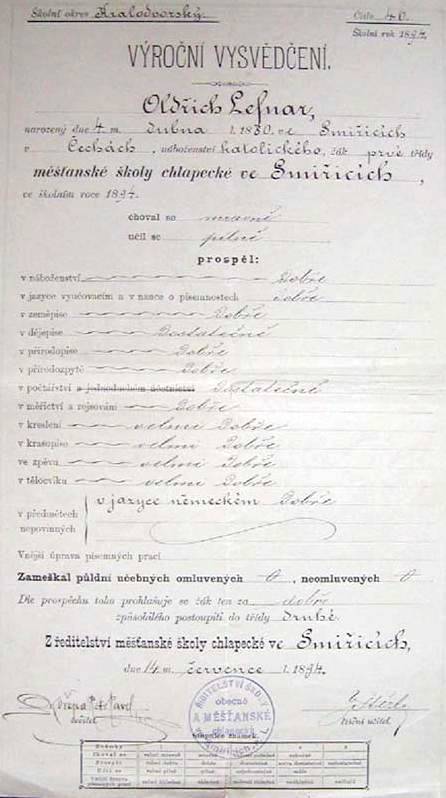 Školní okres Kralodvorský. Číslo 40.
Školní rok 1894.
VÝROČNÍ VYSVĚDČENÍ.
Oldřich Lefnar,
narozený dne 4. m. dubna l. 1880. ve Smiřicích
v Čechách, náboženství katolického, žák prvé třídy
měšťanské školy chlapecké ve Smiřicích,
ve školním roce 1894.
choval se mravně
učil se pilně
prospěl:
v náboženství Dobře
v jazyce vyučovacím a v nauce o písemnostech Dobře
v zeměpise Dobře
v dějepise Dostatečně
v přírodopise Dobře
v přírodozpytě Dobře
v počtářství a jednoduchém účetnictví Dostatečně
v měřictví a rýsování Dobře
v kreslení velmi Dobře
v krasopise velmi Dobře
ve zpěvu velmi Dobře
v tělocviku velmi Dobře
v předmětech nepovinných v jazyce německém Dobře
Vnější úprava písemných prací
Zameškal půldní učebných omluvených 0, neomluvených 0
Dle prospěchu toho prohlašuje se žák ten za dobře
způsobilého postoupiti do třídy druhé.
Z ředitelství měšťanské školy chlapecké ve Smiřicích,
dne 14. m. července l. 1894.
ŘEDITELSTVÍ ŠKOLY
obecné
A MĚŠŤANSKÉ
chlapecké
ředitel.
třídní učitel.
Stupnice známek.